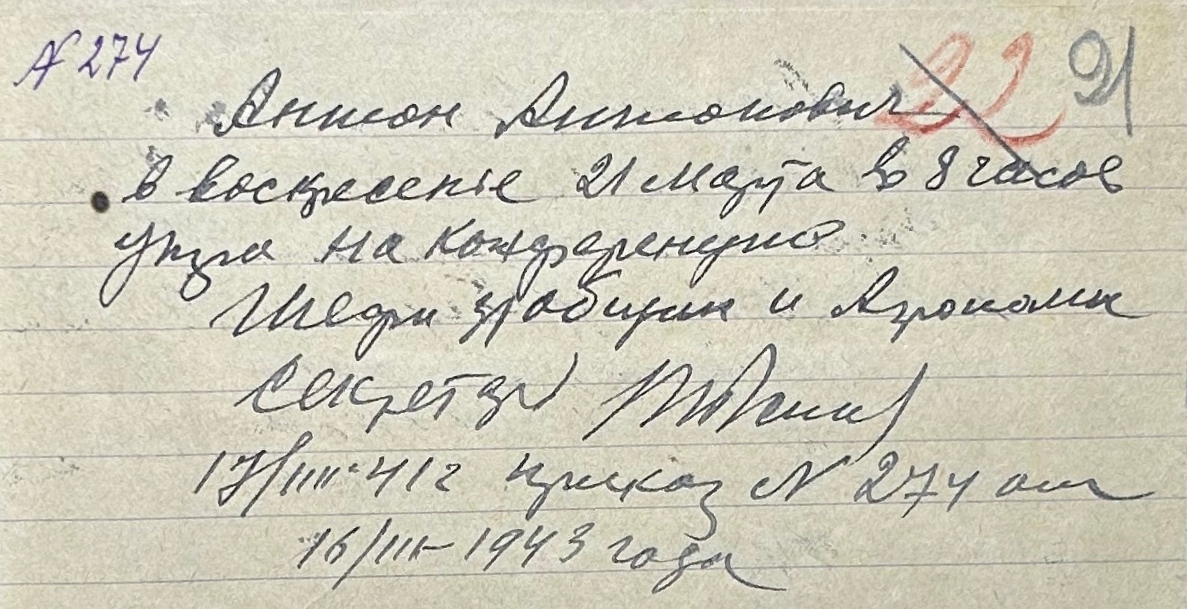 № 274
22 91
Антон Антонович
в воскресенье 21 марта в 8 часов
утра на конференцию
и Агрономы
секретарь
17/III-41г приказ N 274 от
16/III-1943 года